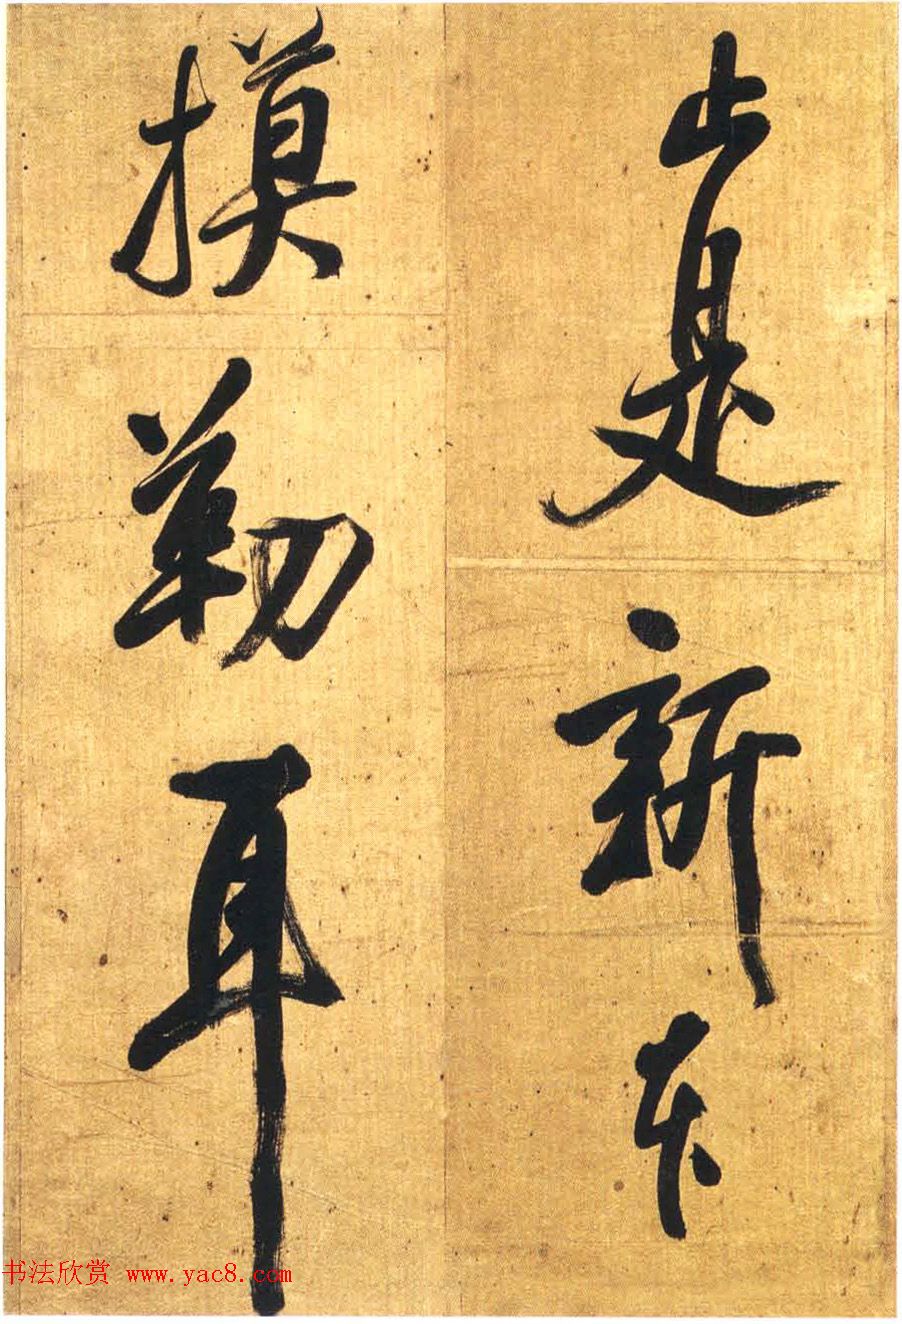 止是新本
摸勒耳
书法欣赏 www.yac8.com